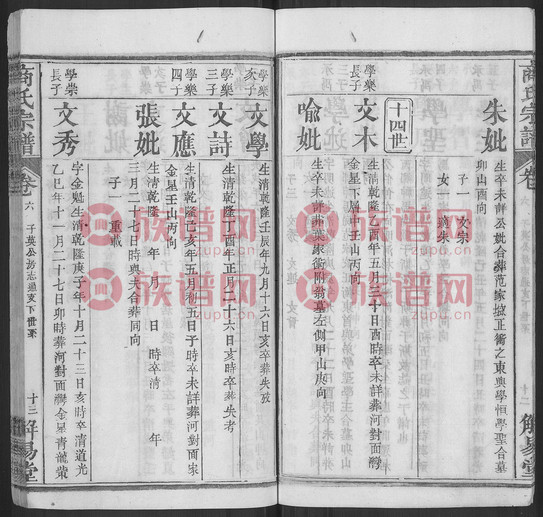 商氏宗譜
卷
六
十二
解易堂
朱妣
生卒未詳公妣合葬范家坡正衝之東與學恒學聖合墓
卯山酉向
子一 文宗
女一 適朱
十四世
學樂
長子
文木
生清乾隆乙酉年五月三十日酉時卒未詳葬河對面灣
金星下層壬山丙向
喻妣
生卒未詳葬葉家衝附翁墓左側甲山庚向
學樂
次子
文學
生清乾隆壬辰年九月十六日亥時卒葬失攷
學樂
三子
文詩
生清乾隆丁酉年正月二十六日亥時卒葬失考
學樂
四子
文應
生清乾隆己亥年五月初五日子時卒未詳葬河對面宋
金星壬山丙向
張妣
生清乾隆 年 月 日 時卒清 年
三月二十七日時與夫合葬同向
子一 重載
學榮
長子
文秀
字金魁生清乾隆庚子年十月二十三日亥時卒清道光
乙巳年十一月二十七日卯時葬河對面灣金星青龍嘴
商氏宗譜
卷
六
子英公房志
支下世系
十三
解易堂
族谱网
族谱网